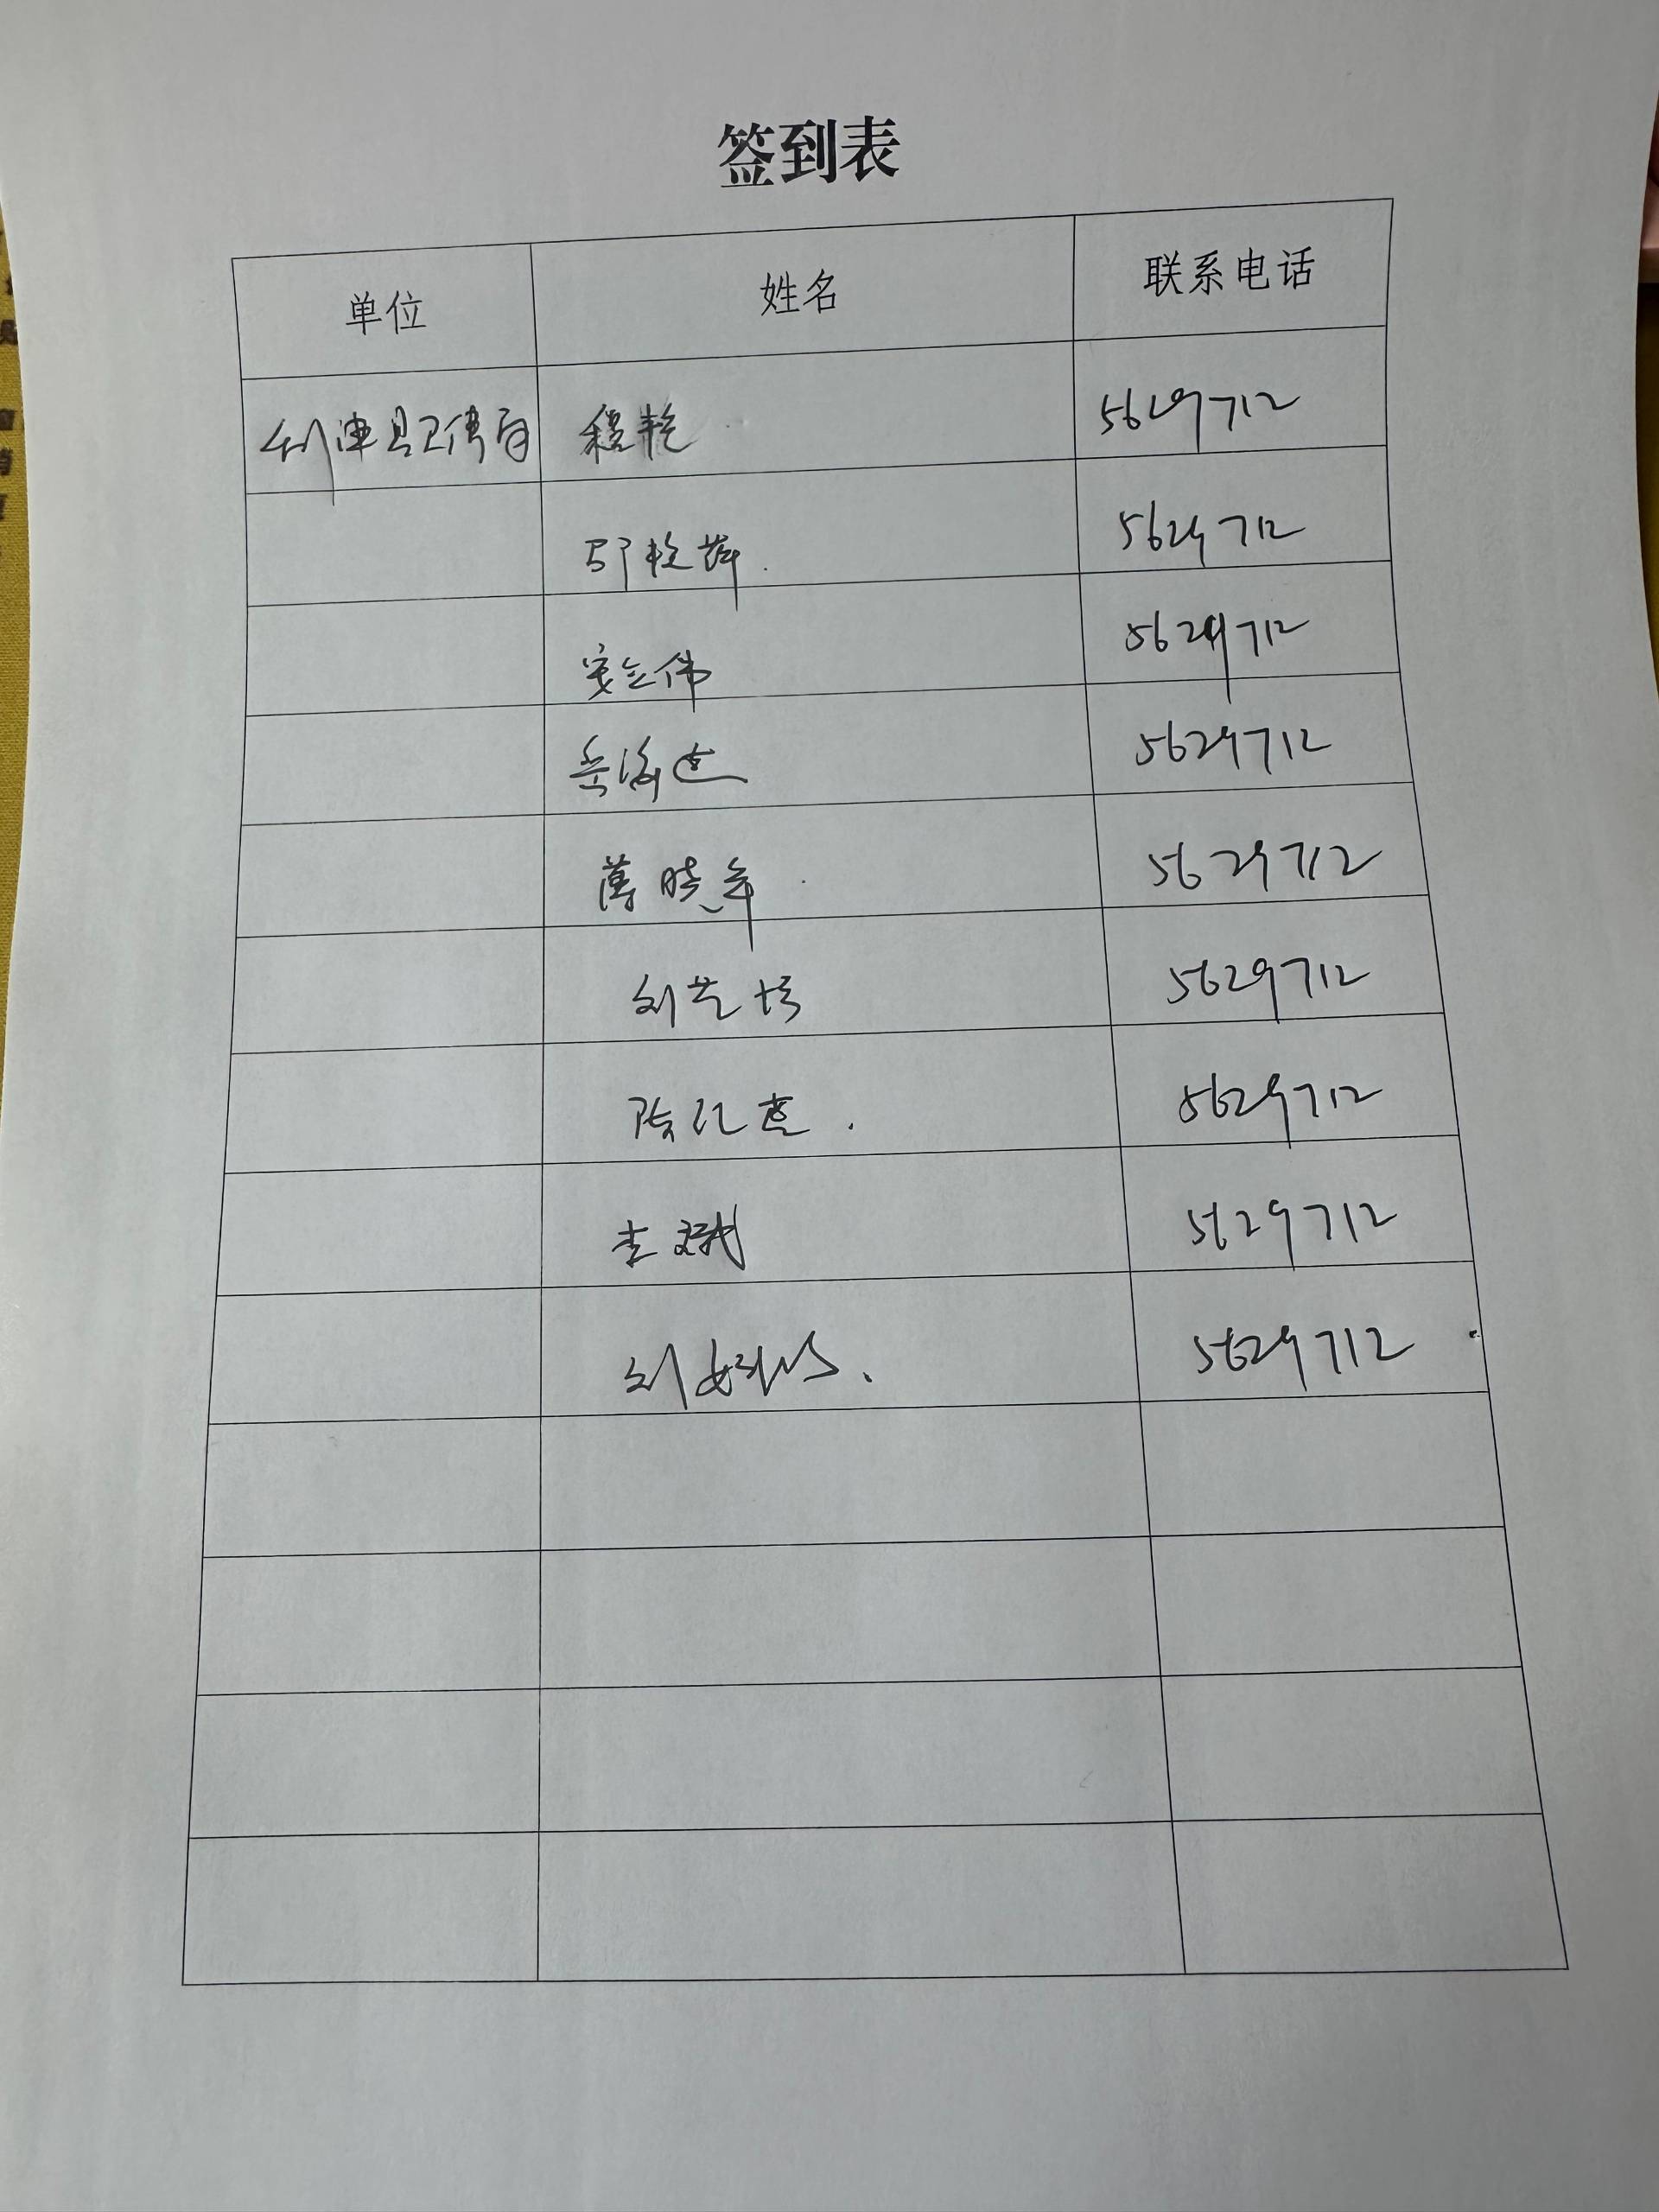 签到表
单位 姓名 联系电话
利津县卫健局 程艳 5629712
5629712
安立伟 5629712
岳海迪 5629712
薄晓年 5629712
刘艺培 5629712
陈红 5629712
李斌 5629712
刘 5629712